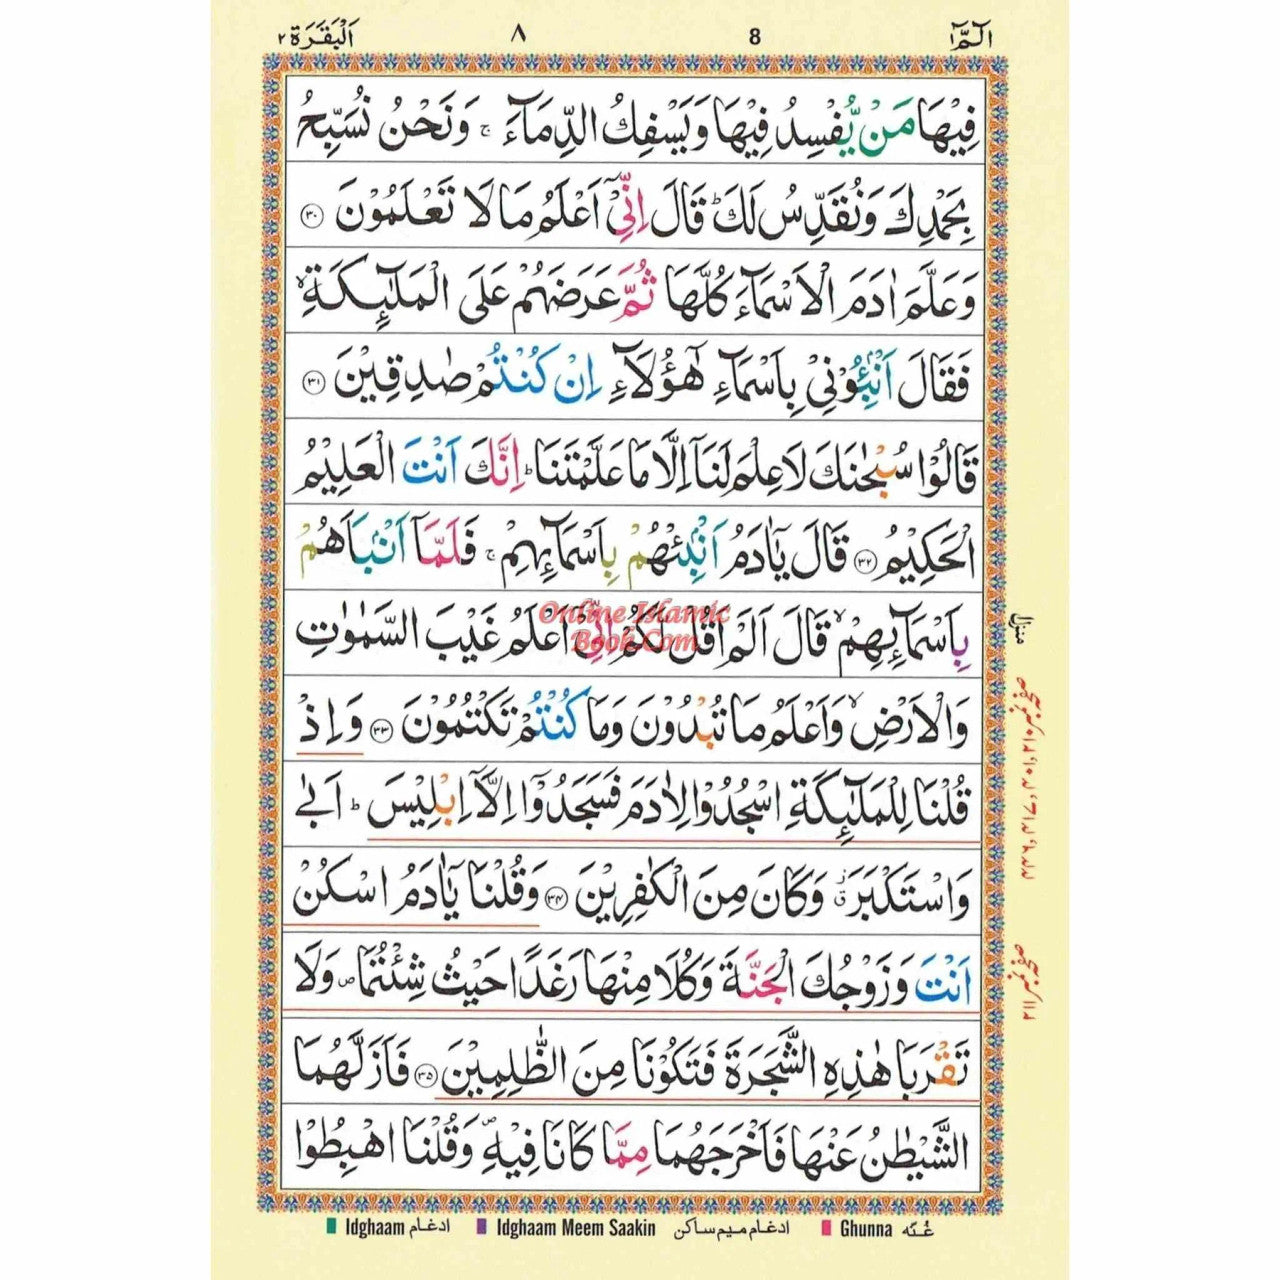 الٓمّٓ ١ 8 ٨ اَلْبَقَرَة ٢
فِيْهَا مَنْ يُّفْسِدُ فِيْهَا وَيَسْفِكُ الدِّمَآءَ ۚ وَنَحْنُ نُسَبِّحُ
بِحَمْدِكَ وَنُقَدِّسُ لَكَ ؕ قَالَ اِنِّىْٓ اَعْلَمُ مَا لَا تَعْلَمُوْنَ ﴿٣٠﴾
وَعَلَّمَ اٰدَمَ الْاَسْمَآءَ كُلَّهَا ثُمَّ عَرَضَهُمْ عَلَى الْمَلٰٓئِكَةِ ۙ
فَقَالَ اَنْۢبِئُوْنِىْ بِاَسْمَآءِ هٰٓؤُلَآءِ اِنْ كُنْتُمْ صٰدِقِيْنَ ﴿٣١﴾
قَالُوْا سُبْحٰنَكَ لَا عِلْمَ لَنَآ اِلَّا مَا عَلَّمْتَنَا ؕ اِنَّكَ اَنْتَ الْعَلِيْمُ
الْحَكِيْمُ ﴿٣٢﴾ قَالَ يٰٓاٰدَمُ اَنْۢبِئْهُمْ بِاَسْمَآئِهِمْ ۚ فَلَمَّآ اَنْۢبَاَهُمْ
بِاَسْمَآئِهِمْ ۙ قَالَ اَلَمْ اَقُلْ لَّكُمْ اِنِّىْٓ اَعْلَمُ غَيْبَ السَّمٰوٰتِ
Online Islamic
Book.Com
وَالْاَرْضِ ۙ وَاَعْلَمُ مَا تُبْدُوْنَ وَمَا كُنْتُمْ تَكْتُمُوْنَ ﴿٣٣﴾ وَاِذْ
قُلْنَا لِلْمَلٰٓئِكَةِ اسْجُدُوْا لِاٰدَمَ فَسَجَدُوْٓا اِلَّآ اِبْلِيْسَ ؕ اَبٰى
وَاسْتَكْبَرَ ۗ وَكَانَ مِنَ الْكٰفِرِيْنَ ﴿٣٤﴾ وَقُلْنَا يٰٓاٰدَمُ اسْكُنْ
اَنْتَ وَزَوْجُكَ الْجَنَّةَ وَكُلَا مِنْهَا رَغَدًا حَيْثُ شِئْتُمَا ۪ وَلَا
تَقْرَبَا هٰذِهِ الشَّجَرَةَ فَتَكُوْنَا مِنَ الظّٰلِمِيْنَ ﴿٣٥﴾ فَاَزَلَّهُمَا
الشَّيْطٰنُ عَنْهَا فَاَخْرَجَهُمَا مِمَّا كَانَا فِيْهِ ۪ وَقُلْنَا اهْبِطُوْا
Idghaam ادغام Idghaam Meem Saakin ادغام میم ساکن Ghunna غُنّه
منزل